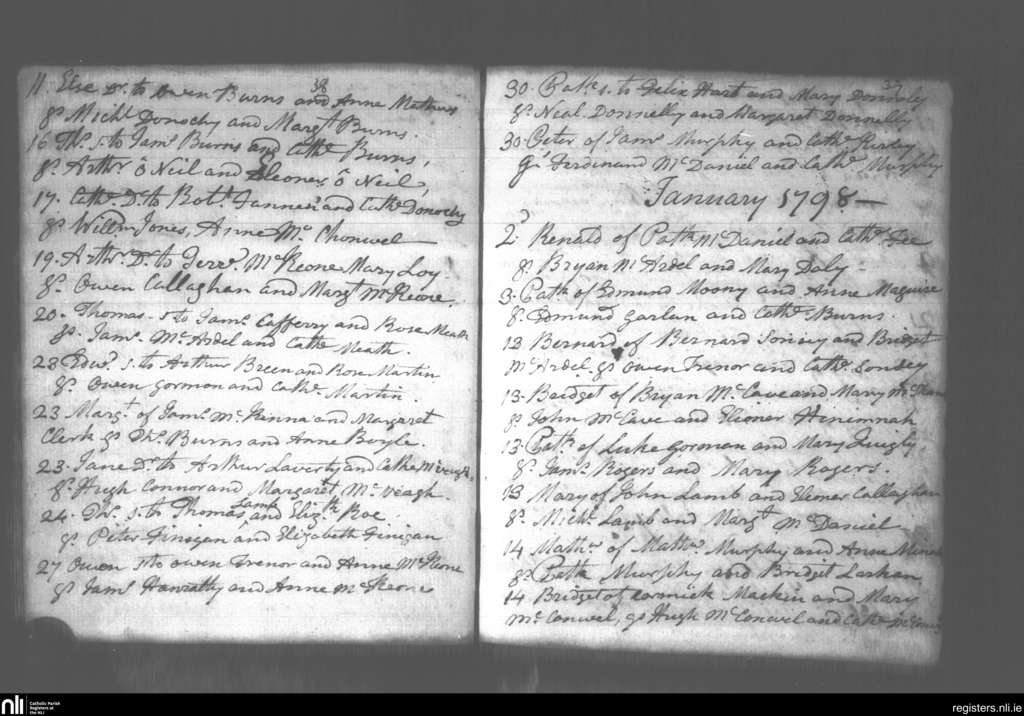 36
11. Else Dr. to Owen Burns and Anne Mathews
gs. Michl. Donochy and Margt. Burns.
16 Ths. s. to Jams. Burns and Cathe. Burns,
gs. Arthr. ô Neil and Eleoner ô Neil,
17. Cathe. Dr. to Robt. Fannen and Cathe. Donochy
gs Willm. Jones, Anne Mc. Chonwel
19. Arthr. Dr. to Jere. McKeone Mary Loy
gs. Owen Callaghan and Margt. McKeone.
20. Thomas s. to Jams. Cafferry and Rose Meath
gs. Jams. Mc.Ardel and Cathe. Meath.
23 Edwd. s. to Arthur Breen and Rose Martin
gs. Owen Gormon and Cathe. Martin.
23 Margt. of Jams. Mc.Kinna and Margaret
Clerk gs Ths. Burns and Anne Boyle.
23. Jane Dr. to Arthur Laverty and Cathe. Mc
gs. Hugh Connor and Margaret Mc.Veagh
24. Ths. s. to Thomas Lamb and Elizth. Roe
gs Peter Finigan and Elizabeth Finigan
27 Owen s. to Owen Trenor and Anne McKeone
gs Jams. Hanratty and Anne McKeone
37
30. Pathk. s. to Felix Hart and Mary Donnely
gs. Neal Donnelly and Margaret Donnelly
30. Peter of Jams. Murphy and Cathe.
gs Ferdinand McDaniel and Cathe. Murphy
January 1798 —
2. Renald of Patk. McDaniel and Cathe. Fee
gs. Bryan McArdel and Mary Daly
3. Patk. of Edmund Moony and Anne Maguire
gs. Edmund Garlan and Cathe. Burns.
12 Bernard of Bernard and Bridget
McArdel. gs Owen Trenor and Cathe.
13. Bridget of Bryan Mc.Cave and Mary
gs John Mc.Cave and Eleoner
13. Patk. of Luke Gormon and Mary Quigly.
gs. Jams. Rogers and Mary Rogers.
13 Mary of John Lamb and Eleoner Callaghan
gs. Michl. Lamb and Margt. McDaniel
14 Mathw. of Mathw. Murphy and Anne
gs Patk. Murphy and Bridget Larkan
14 Bridget of Cormick Mackin and Mary
Mc.Conwel, gs Hugh McConwel and Cathe.
nli
Catholic Parish
Registers at
the NLI
registers.nli.ie